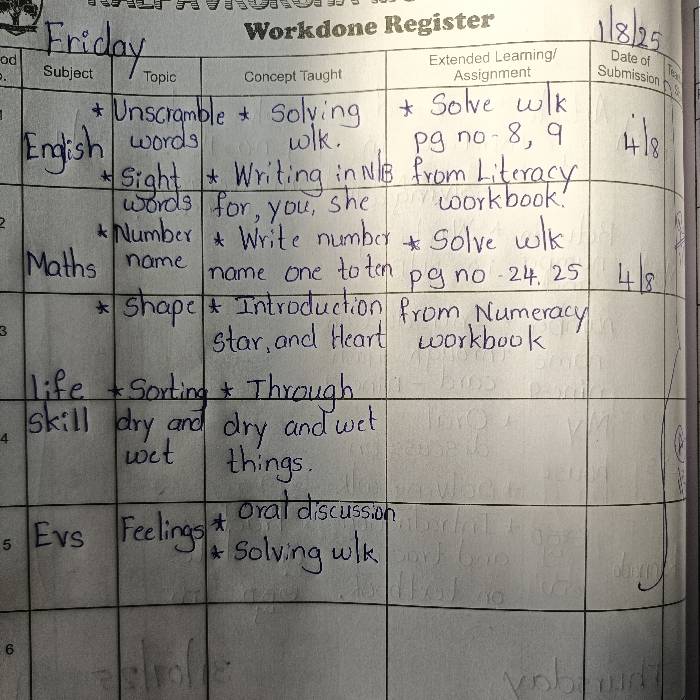 Workdone Register
Friday
1/8/25
Subject
Topic
Concept Taught
Extended Learning/
Assignment
Date of
Submission
English
* Unscramble
words
* Solving
wlk.
* Solve wlk
pg no - 8, 9
from Literacy
workbook.
4/8
* Sight
words
* Writing in N/B
for, you, she
2
Maths
* Number
name
* Write number
name one to ten
* Solve wlk
pg no - 24. 25
from Numeracy
workbook
4/8
3
* Shape
* Introduction
star, and Heart
4
life
skill
* Sorting
dry and
wet
* Through
dry and wet
things.
5
Evs
Feelings
* oral discussion
* Solving wlk
6